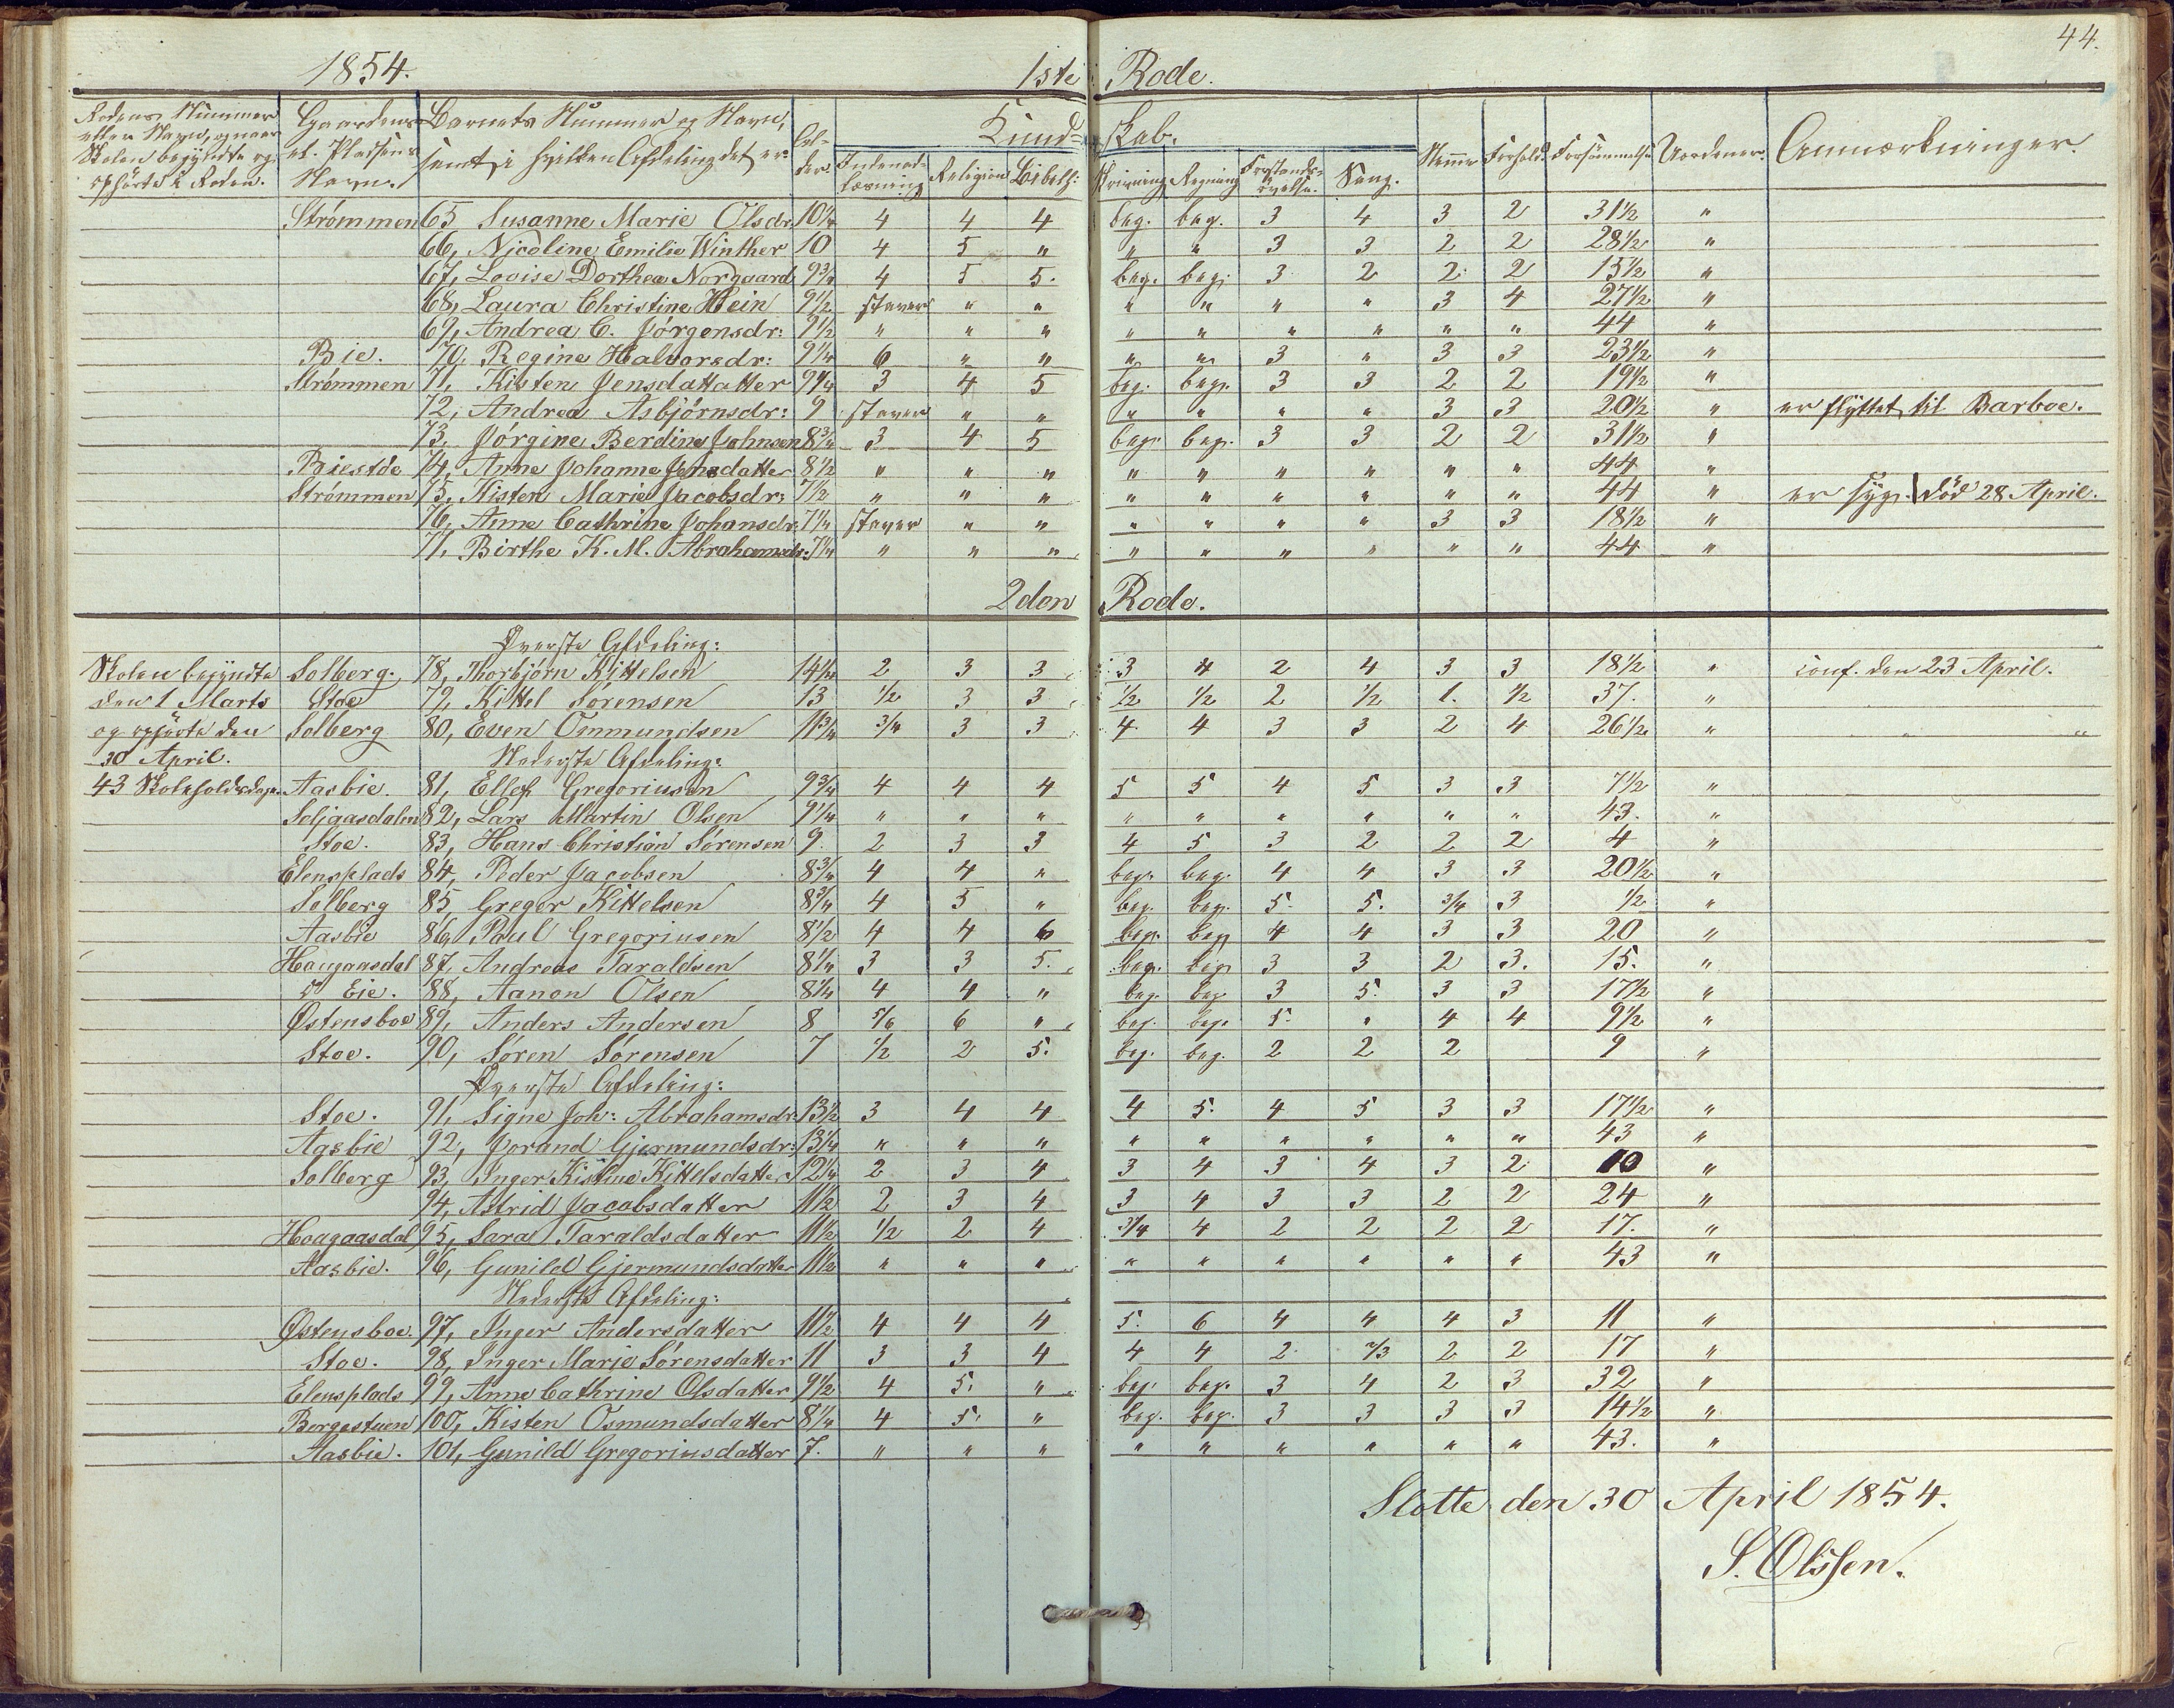 44.
1854. 1ste Rode.
Rodens Nummer eller Navn, og naar Skolen begyndte og ophørte i Roden. Gaardens el. Pladsens Navn. Barnets Nummer og Navn, samt i hvilken Afdeling det er. Alder. Kundskab. Nemme Forhold. Forsømmelse Uordener. Anmærkninger.
Indenadlæsning Religion Bibelh: Skrivning Regning Forstandsøvelse. Sang.
Strømmen 65 Susanne Marie Olsdr. 10 1/4 4 4 4 beg. beg. 3 4 3 2 31 1/2 "
66, Nicoline Emilie Winther 10 4 5 " " " 3 3 2 2 28 1/2 "
67, Lovise Dorthea Norgaard 9 3/4 4 5 5. beg. beg. 3 2 2 2 15 1/2 "
68, Laura Christine Hein 9 1/2 staver " " " " " " 3 4 27 1/2 "
69, Andrea C. Jörgensdr: 9 1/2 " " " " " " " " " 44 "
Bie. 70, Regine Halvorsdr: 9 1/4 6 " " " " 3 " 3 3 23 1/2 "
Strømmen 71, Kisten Jensdattatter 9 1/4 3 4 5 beg. beg. 3 3 2 2 19 1/2 "
72, Andrea Asbjörnsdr: 9 staver " " " " " " 3 3 20 1/2 " er flyttet til Barboe.
73, Jörgine Berdine Johnsen 8 3/4 3 4 5 beg. beg. 3 3 2 2 31 1/2 "
Biestöe 74, Anne Johanne Jensdatter 8 1/2 " " " " " " " " " 44 "
Strömmen 75, Kisten Marie Jacobsdr: 7 1/2 " " " " " " " " " 44 " er syg. död 28 April.
76, Anne Cathrine Johansdr. 7 1/4 staver " " " " " " 3 3 18 1/2 "
77, Birthe K. M. Abrahamsdr: 7 1/4 " " " " " " " " " 44 "
2den Rode.
Øverste Afdeling:
Skolen begyndte Solberg. 78, Thorbjörn Kittelsen 14 1/4 2 3 3 3 4 2 4 3 3 18 1/2 " conf. den 23 April.
den 1 Marts Stoe 79, Kittel Sørensen 13 1/2 3 3 1/2 1/2 2 1/2 1. 1/2 37. "
og ophørte den Solberg 80, Even Ommundsen 11 3/4 3/4 3 3 4 4 3 3 2 4 26 1/2 "
30 April. Nederste Afdeling:
43 Skoleholdsdage. Aasbie. 81, Ellef Gregoriusen 9 3/4 4 4 4 5 5 4 5 3 3 7 1/2 "
Seljaasdalen 82, Lars Martin Olsen 9 1/4 " " " " " " " " " 43. "
Stoe. 83, Hans Christian Sörensen 9 2 3 3 4 5 3 2 2 2 4 "
Elensplads 84, Peder Jacobsen 8 3/4 4 4 " beg. beg. 4 4 3 3 20 1/2 "
Solberg 85 Greger Kittelsen 8 3/4 4 5 " beg. beg. 5. 5. 3/4 3 1/2 "
Aasbie 86, Paul Gregoriusen 8 1/2 4 4 6 beg. beg 4 4 3 3 20 "
Haugaasdal 87, Andreas Taraldsen 8 1/4 3 3 5. beg. beg 3 3 2 3. 15. "
Eie. 88, Aanon Olsen 8 1/4 4 4 " beg. beg. 3 5. 3 3 17 1/2 "
Østensboe 89, Anders Andersen 8 5/6 6 " beg. beg. 5. " 4 4 9 1/2 "
Stoe. 90, Søren Sörensen 7 1/2 2 5. beg. beg. 2 2 2 9 "
Øverste Afdeling:
Stoe. 91, Signe Joh: Abrahamsdr. 13 1/2 3 4 4 4 5. 4 5 3 3 17 1/2 "
Aasbie 92, Jorand Gjermundsdr: 13 1/4 " " " " " " " " " 43 "
Solberg 93, Inger Kistine Kittelsdatter 12 1/4 2 3 4 3 4 3 4 3 2 10 "
94, Astrid Jacobsdatter 11 1/2 2 3 4 3 4 3 3 2 2 24 "
Hougaasdal 95, Sara Taraldsdatter 11 1/2 1/2 2 4 3/4 4 2 2 2 2 17. "
Aasbie. 96, Gunild Gjermundsdatter 11 1/2 " " " " " " " " " 43 "
Nederste Afdeling:
Østensboe. 97, Inger Andersdatter 11 1/2 4 4 4 5. 6 4 4 4 3 11 "
Stoe. 98, Inger Marie Sörensdatter 11 3 3 4 4 4 2 2/3 2 2 17 "
Elensplads 99, Anne Cathrine Olsdatter 9 1/2 4 5. " beg. beg. 3 4 2 3 32 "
Borgestuen 100, Kisten Osmundsdatter 8 1/4 4 5. " beg. beg. 3 3 3 3 14 1/2 "
Aasbie. 101, Gunild Gregoriusdatter 7. " " " " " " " " " 43. "
Slotte den 30 April 1854.
S. Olssen.